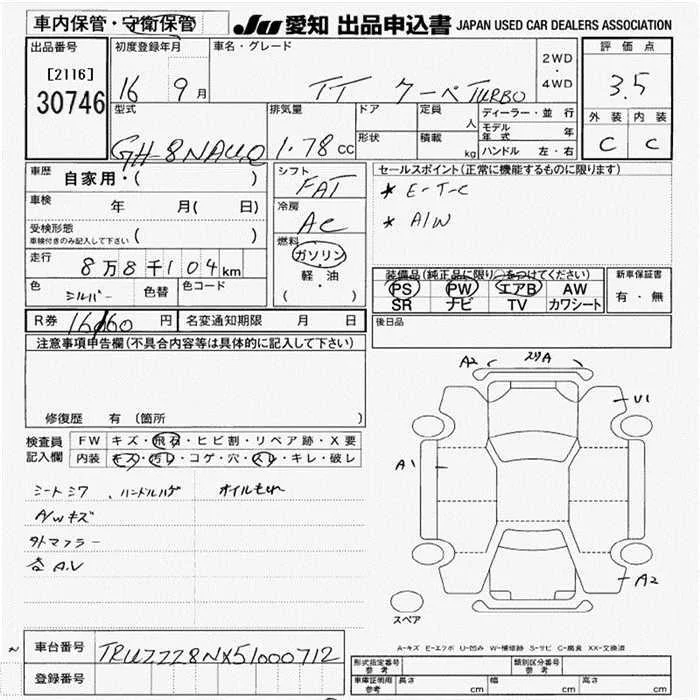 車内保管・守衛保管
JU 愛知 出品申込書 JAPAN USED CAR DEALERS ASSOCIATION
出品番号
[2116]
30746
初度登録年月
16 9 月
車名・グレード
TT クーペ TURBO
2WD
・
4WD
評価点
3.5
外装 内装
C C
型式
GH-8NAUQ
排気量
1.78 CC
ドア
形状
定員
人
積載
kg
ディーラー・並行
モデル年式 年
ハンドル 左・右
車歴
自家用・( )
車検
年 月( 日)
受検形態
車検付きのみ記入して下さい ( )
走行
8万8千104km
色
シルバー
色替
色コード
シフト
FAT
冷房
AC
燃料
ガソリン
・
軽・油
( )
セールスポイント(正常に機能するものに限ります)
* E-T-C
* A/W
装備品(純正品に限り○をつけてください)
PS PW エアB AW
SR ナビ TV カワシート
新車保証書
有・無
R券 16160 円
名変通知期限 月 日
後日品
注意事項申告欄(不具合内容等は具体的に記入して下さい)
修復歴 有 (箇所 )
検査員
記入欄
FW キズ・飛石・ヒビ割・リペア跡・X要
内装 キズ・汚レ・コゲ・穴・スレ・キレ・破レ
シートシワ 、ハンドルハゲ オイルもれ
A/Wキズ
外マフラー
A.V
A2 スリA
U1
A1
A2
スペア
A-キズ E-エクボ U-凹み W-補修跡 S-サビ C-腐食 XX-交換済
車台番号
TRUZZZ8NX51000712
登録番号
形式指定番号
参考
類別区分番号
参考
車庫証明用
参考
長さ cm 幅 cm 高さ cm